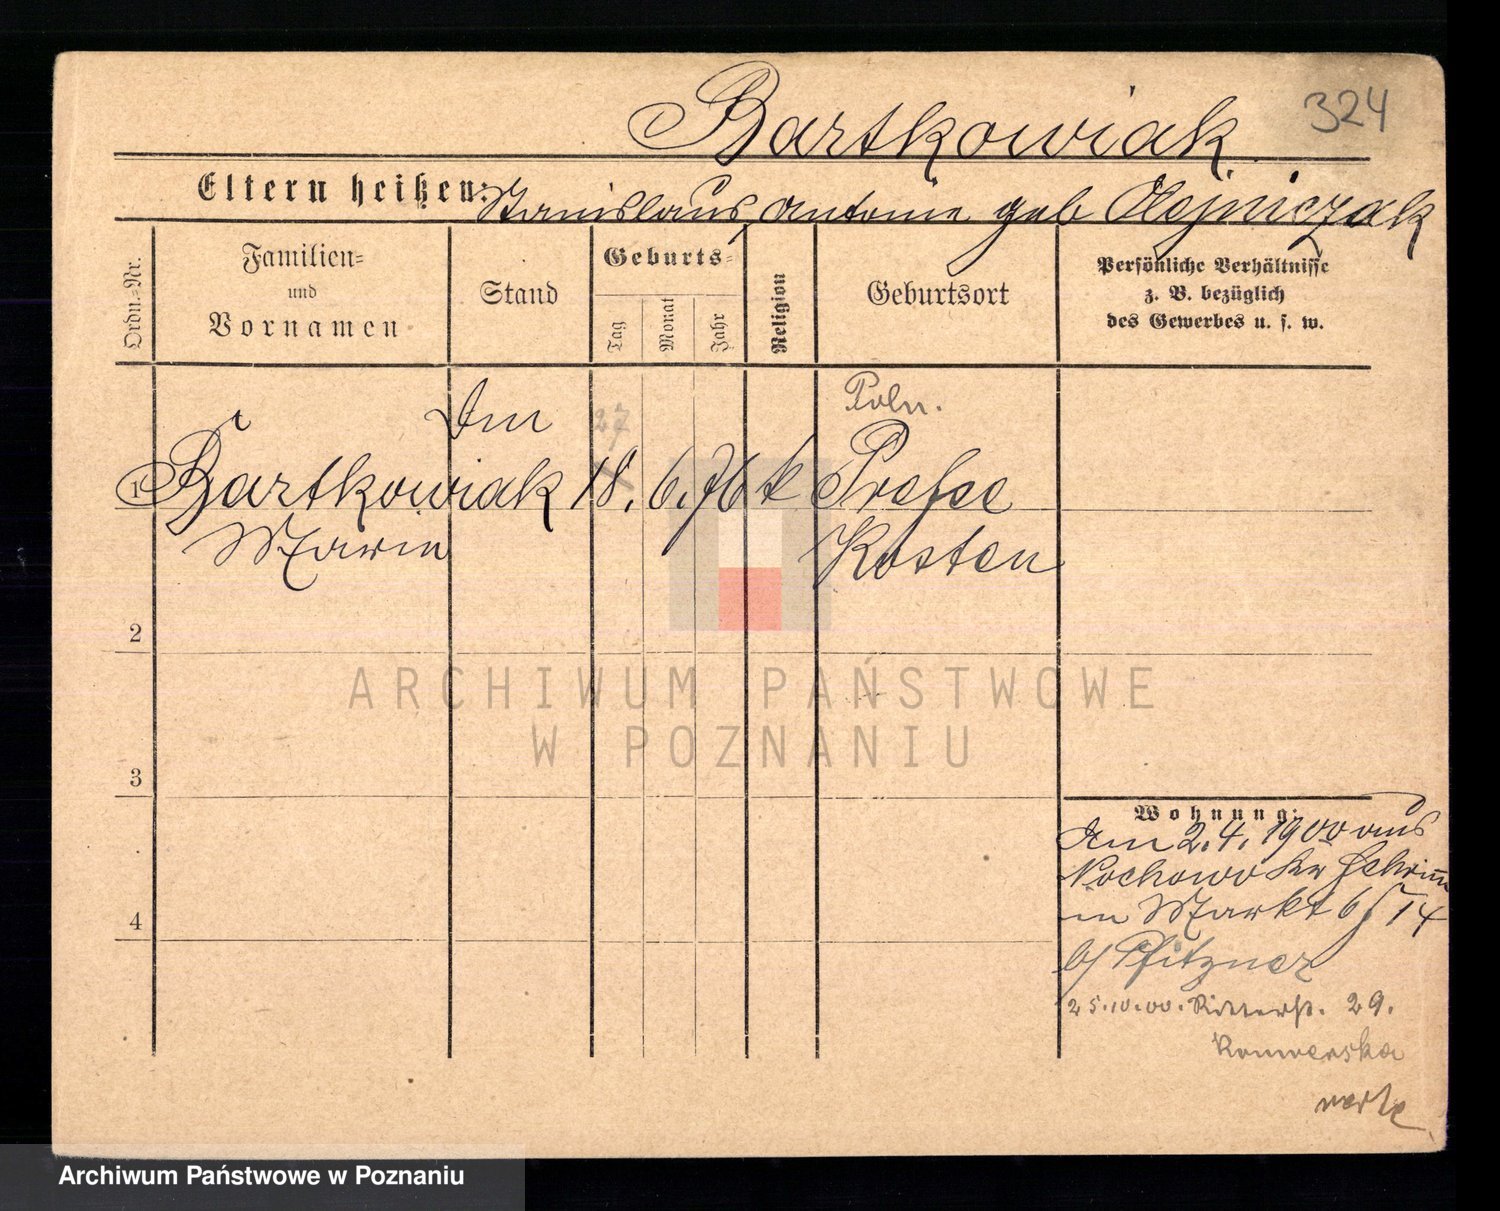 Bartkowiak
324
Eltern heißen: Stanislaus, Antonie geb Olejniczak
Ordn.-Nr.
Familien-
und
Vornamen
Stand
Geburts-
Tag
Monat
Jahr
Religion
Geburtsort
Persönliche Verhältnisse
z. B. bezüglich
des Gewerbes u. s. w.
Poln.
27
1 Bartkowiak 18. 6. 76 k
Marie
Kosten
2
3
4
Wohnung:
Am 2.4. 1900 aus
Nochowo Kr Schrimm
in Markt 14
b/ Pfitzner
25.10.00. Ritterst. 29.
ARCHIWUM PAŃSTWOWE
W POZNANIU
Archiwum Państwowe w Poznaniu